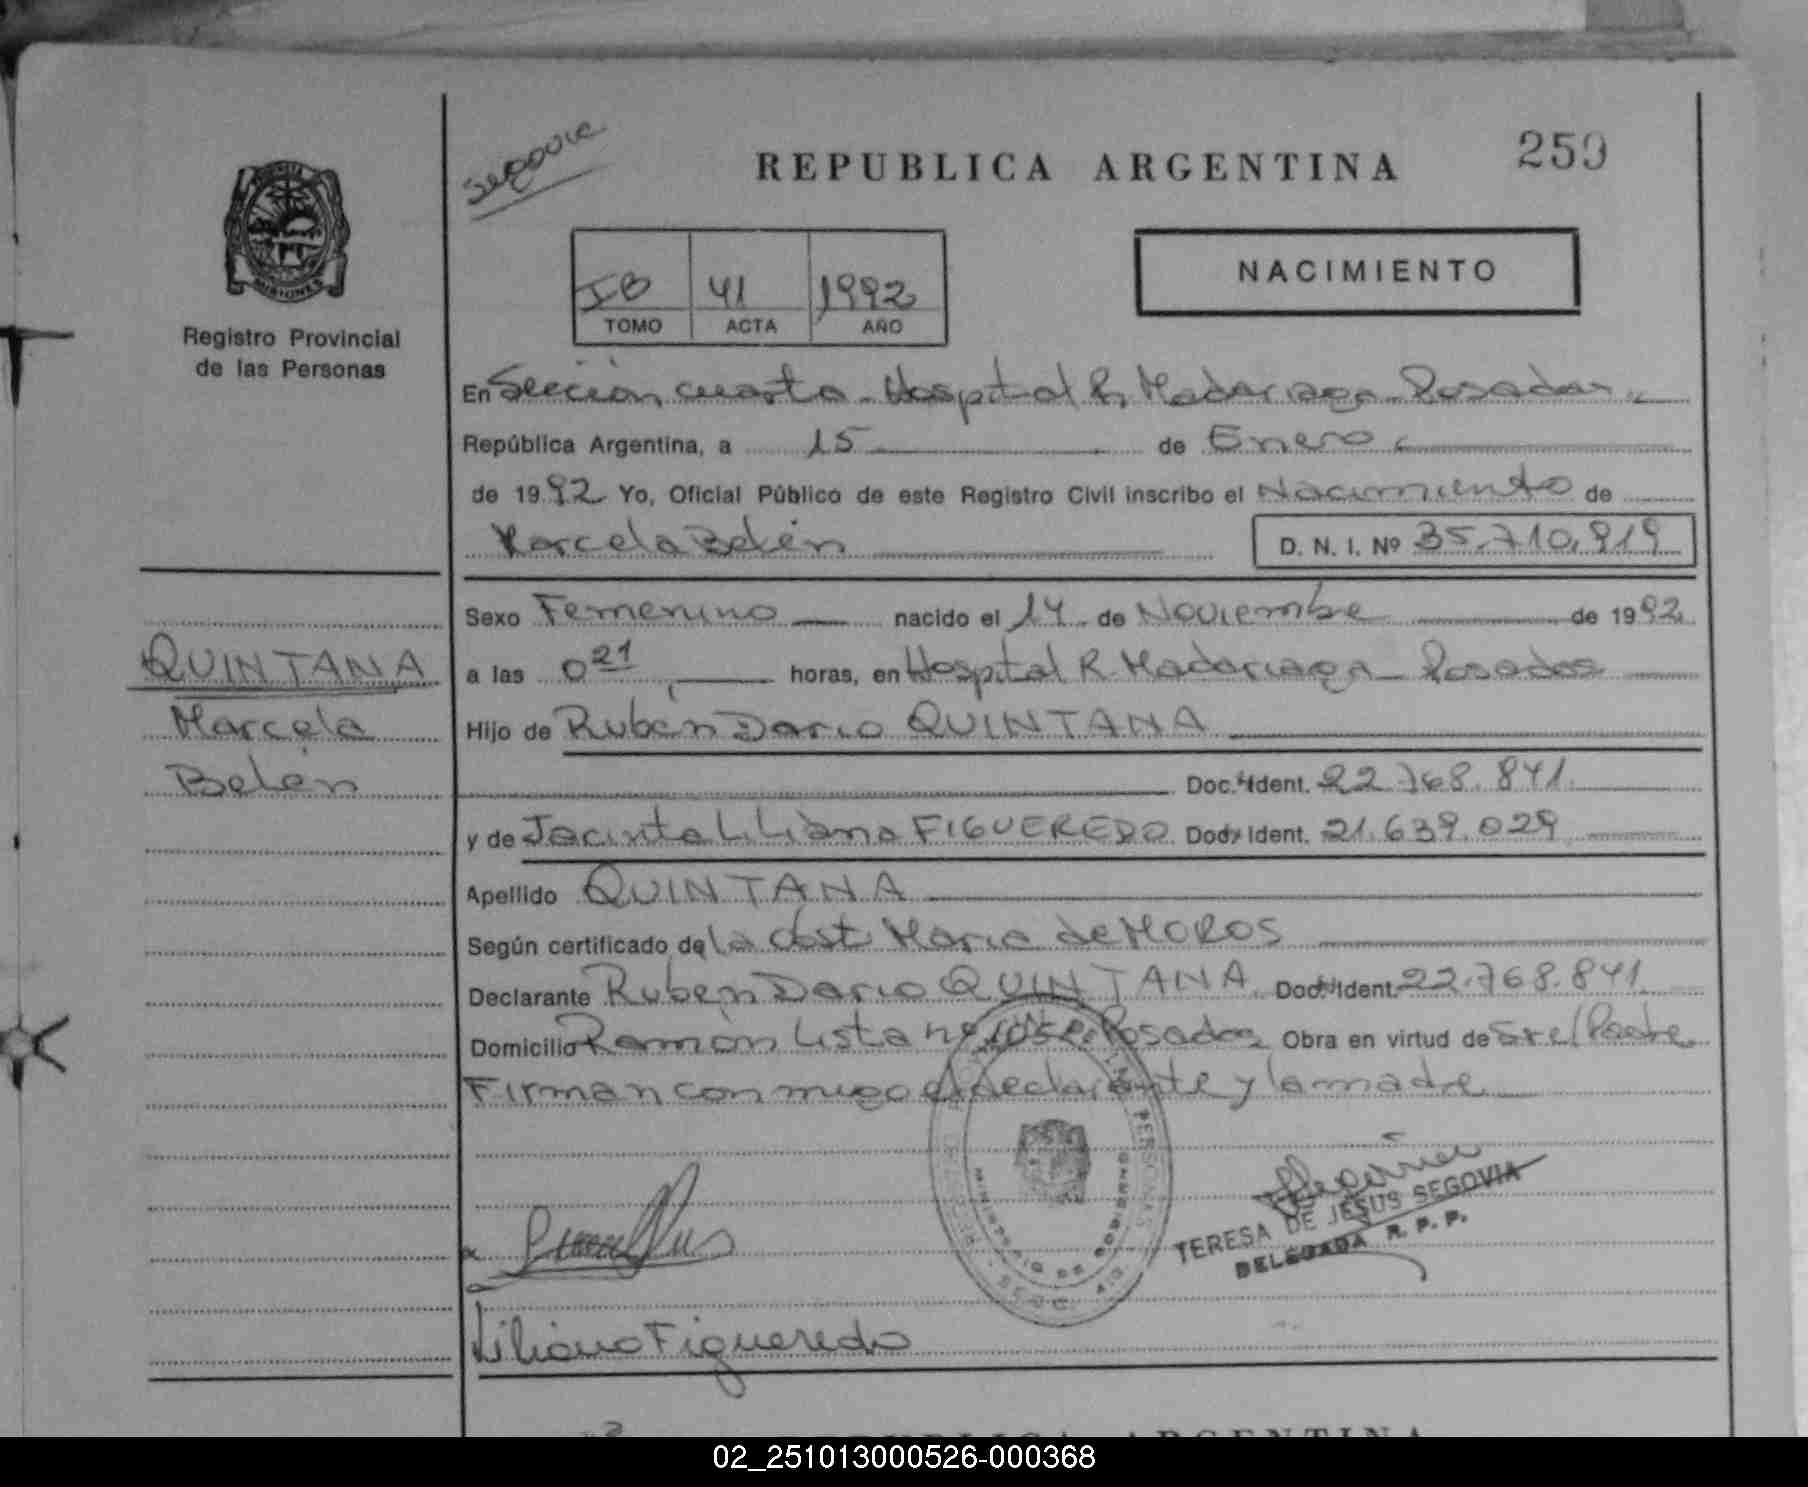 Segovia
REPUBLICA ARGENTINA
259
MISIONES
Registro Provincial
de las Personas
IB 41 1992
TOMO ACTA AÑO
NACIMIENTO
En Sección cuarta - Hospital R. Madariaga - Posadas
República Argentina, a 15 de Enero
de 1992 Yo, Oficial Público de este Registro Civil inscribo el Nacimiento de
Marcela Belén D. N. I. Nº 35.710.919
QUINTANA
Marcela
Belén
Sexo Femenino nacido el 14 de Noviembre de 1992
a las 0 21 horas, en Hospital R. Madariaga - Posadas
Hijo de Rubén Dario QUINTANA
Doc. Ident. 22.768.841
y de Jacinta Liliana FIGUEREDO Doc. Ident. 21.639.029
Apellido QUINTANA
Según certificado de la obst. Maria de MOROS
Declarante Rubén Dario QUINTANA Doc. Ident. 22.768.841
Domicilio Ramón Lista Posadas Obra en virtud de Ser el Padre
Firman conmigo el declarante y la madre
TERESA DE JESUS SEGOVIA
DELEGADA R. P. P.
Liliana Figueredo
REPUBLICA ARGENTINA
02_251013000526-000368